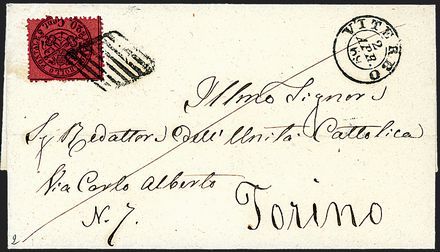 VITERBO
2
APR.
69
Illmo Signore
Sig Redattore dell'Unità Cattolica
Via Carlo Alberto
N. 7.
Torino
2